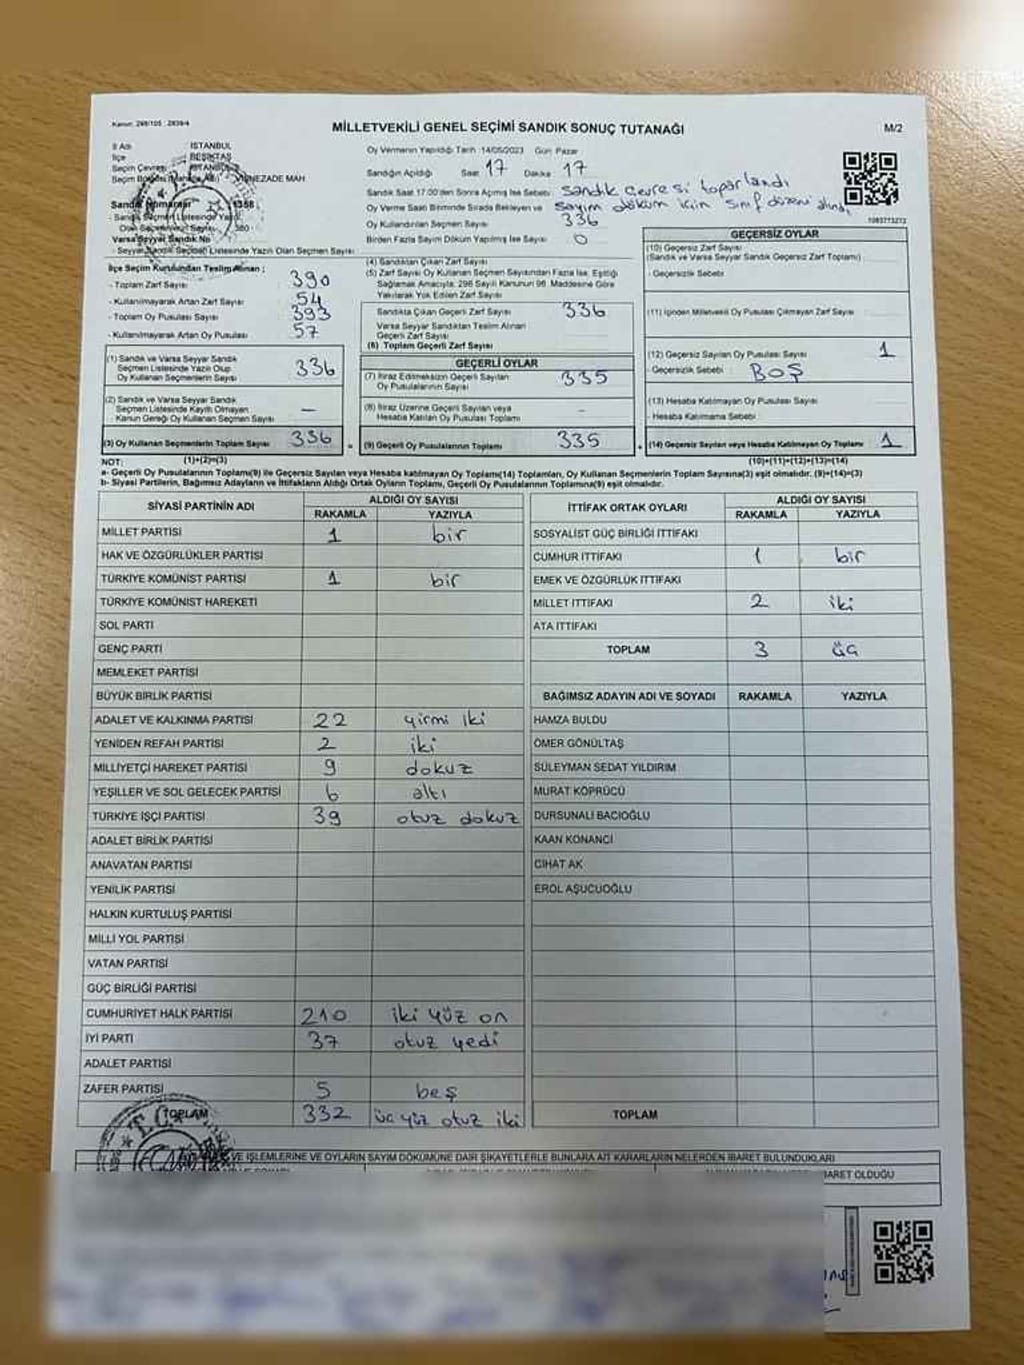 Kanun: 298/105 : 2839/4
MİLLETVEKİLİ GENEL SEÇİMİ SANDIK SONUÇ TUTANAĞI
M/2
İl Adı İSTANBUL
İlçe BEŞİKTAŞ
Seçim Çevresi İSTANBUL
Seçim Bölgesi MAH.
Sandık 1358
- Sandık Seçmen Listesinde Yazılı
Olan Seçmen Sayısı 380
Varsa Seyyar Sandık No
- Seyyar Sandık Seçmen Listesinde Yazılı Olan Seçmen Sayısı
Oy Vermenin Yapıldığı Tarih :14/05/2023 Gün Pazar
Sandığın Açıldığı Saat 17 Dakika 17
Sandık Saat 17:00'den Sonra Açılmış İse Sebebi sandık çevresi toparlandı
Oy Verme Saati Bitiminde Sırada Bekleyen ve sayım döküm için sınıf düzeni
Oy Kullandırılan Seçmen Sayısı 336
Birden Fazla Sayım Döküm Yapılmış İse Sayısı 0
1083773273
İlçe Seçim Kurulundan Teslim Alınan ;
- Toplam Zarf Sayısı 390
- Kullanılmayarak Artan Zarf Sayısı 54
- Toplam Oy Pusulası Sayısı 393
- Kullanılmayarak Artan Oy Pusulası 57
(1) Sandık ve Varsa Seyyar Sandık
Seçmen Listesinde Yazılı Olup
Oy Kullanan Seçmenlerin Sayısı 336
(2) Sandık ve Varsa Seyyar Sandık
Seçmen Listesinde Kayıtlı Olmayan
- Kanun Gereği Oy Kullanan Seçmen Sayısı –
(3) Oy Kullanan Seçmenlerin Toplam Sayısı 336
(1)+(2)=(3)
(4) Sandıktan Çıkan Zarf Sayısı
(5) Zarf Sayısı Oy Kullanan Seçmen Sayısından Fazla İse, Eşitliği
Sağlamak Amacıyla; 298 Sayılı Kanunun 98. Maddesine Göre
Yakılarak Yok Edilen Zarf Sayısı
Sandıkta Çıkan Geçerli Zarf Sayısı 336
Varsa Seyyar Sandıktan Teslim Alınan
Geçerli Zarf Sayısı
(6) Toplam Geçerli Zarf Sayısı
GEÇERLİ OYLAR
(7) İtiraz Edilmeksizin Geçerli Sayılan
Oy Pusulalarının Sayısı 335
(8) İtiraz Üzerine Geçerli Sayılan veya
Hesaba Katılan Oy Pusulası Toplamı –
= (9) Geçerli Oy Pusulalarının Toplamı 335
GEÇERSİZ OYLAR
(10) Geçersiz Zarf Sayısı
(Sandık ve Varsa Seyyar Sandık Geçersiz Zarf Toplamı)
- Geçersizlik Sebebi
(11) İçinden Milletvekili Oy Pusulası Çıkmayan Zarf Sayısı
(12) Geçersiz Sayılan Oy Pusulası Sayısı 1
- Geçersizlik Sebebi BOŞ
(13) Hesaba Katılmayan Oy Pusulası Sayısı
- Hesaba Katılmama Sebebi
+ (14) Geçersiz Sayılan veya Hesaba Katılmayan Oy Toplamı 1
(10)+(11)+(12)+(13)=(14)
NOT:
a- Geçerli Oy Pusulalarının Toplamı(9) ile Geçersiz Sayılan veya Hesaba katılmayan Oy Toplamı(14) Toplamları, Oy Kullanan Seçmenlerin Toplam Sayısına(3) eşit olmalıdır. (9)+(14)=(3)
b- Siyasi Partilerin, Bağımsız Adayların ve İttifakların Aldığı Ortak Oyların Toplamı, Geçerli Oy Pusulalarının Toplamına(9) eşit olmalıdır.
SİYASİ PARTİNİN ADI ALDIĞI OY SAYISI
RAKAMLA YAZIYLA
MİLLET PARTİSİ 1 bir
HAK VE ÖZGÜRLÜKLER PARTİSİ
TÜRKİYE KOMÜNİST PARTİSİ 1 bir
TÜRKİYE KOMÜNİST HAREKETİ
SOL PARTİ
GENÇ PARTİ
MEMLEKET PARTİSİ
BÜYÜK BİRLİK PARTİSİ
ADALET VE KALKINMA PARTİSİ 22 yirmi iki
YENİDEN REFAH PARTİSİ 2 iki
MİLLİYETÇİ HAREKET PARTİSİ 9 dokuz
YEŞİLLER VE SOL GELECEK PARTİSİ 6 altı
TÜRKİYE İŞÇİ PARTİSİ 39 otuz dokuz
ADALET BİRLİK PARTİSİ
ANAVATAN PARTİSİ
YENİLİK PARTİSİ
HALKIN KURTULUŞ PARTİSİ
MİLLİ YOL PARTİSİ
VATAN PARTİSİ
GÜÇ BİRLİĞİ PARTİSİ
CUMHURİYET HALK PARTİSİ 210 iki yüz on
İYİ PARTİ 37 otuz yedi
ADALET PARTİSİ
ZAFER PARTİSİ 5 beş
TOPLAM 332 üç yüz otuz iki
İTTİFAK ORTAK OYLARI ALDIĞI OY SAYISI
RAKAMLA YAZIYLA
SOSYALİST GÜÇ BİRLİĞİ İTTİFAKI
CUMHUR İTTİFAKI 1 bir
EMEK VE ÖZGÜRLÜK İTTİFAKI
MİLLET İTTİFAKI 2 iki
ATA İTTİFAKI
TOPLAM 3 üç
BAĞIMSIZ ADAYIN ADI VE SOYADI RAKAMLA YAZIYLA
HAMZA BULDU
ÖMER GÖNÜLTAŞ
SÜLEYMAN SEDAT YILDIRIM
MURAT KÖPRÜCÜ
DURSUNALİ BACIOĞLU
KAAN KONANCİ
CİHAT AK
EROL AŞUCUOĞLU
TOPLAM
VE İŞLEMLERİNE VE OYLARIN SAYIM DÖKÜMÜNE DAİR ŞİKAYETLERLE BUNLARA AİT KARARLARIN NELERDEN İBARET BULUNDUKLARI
İBARET OLDUĞU